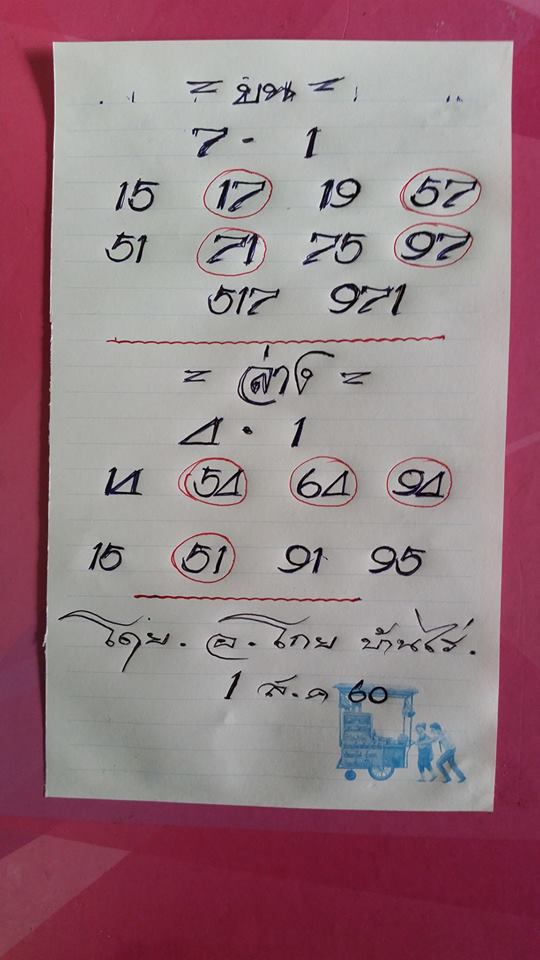 = บน =
7 · 1
15 17 19 57
51 71 75 97
517 971
= ล่าง =
4 · 1
14 54 64 94
15 51 91 95
โดย. อ. โกย บ้านไร่.
1 ส.ค 60